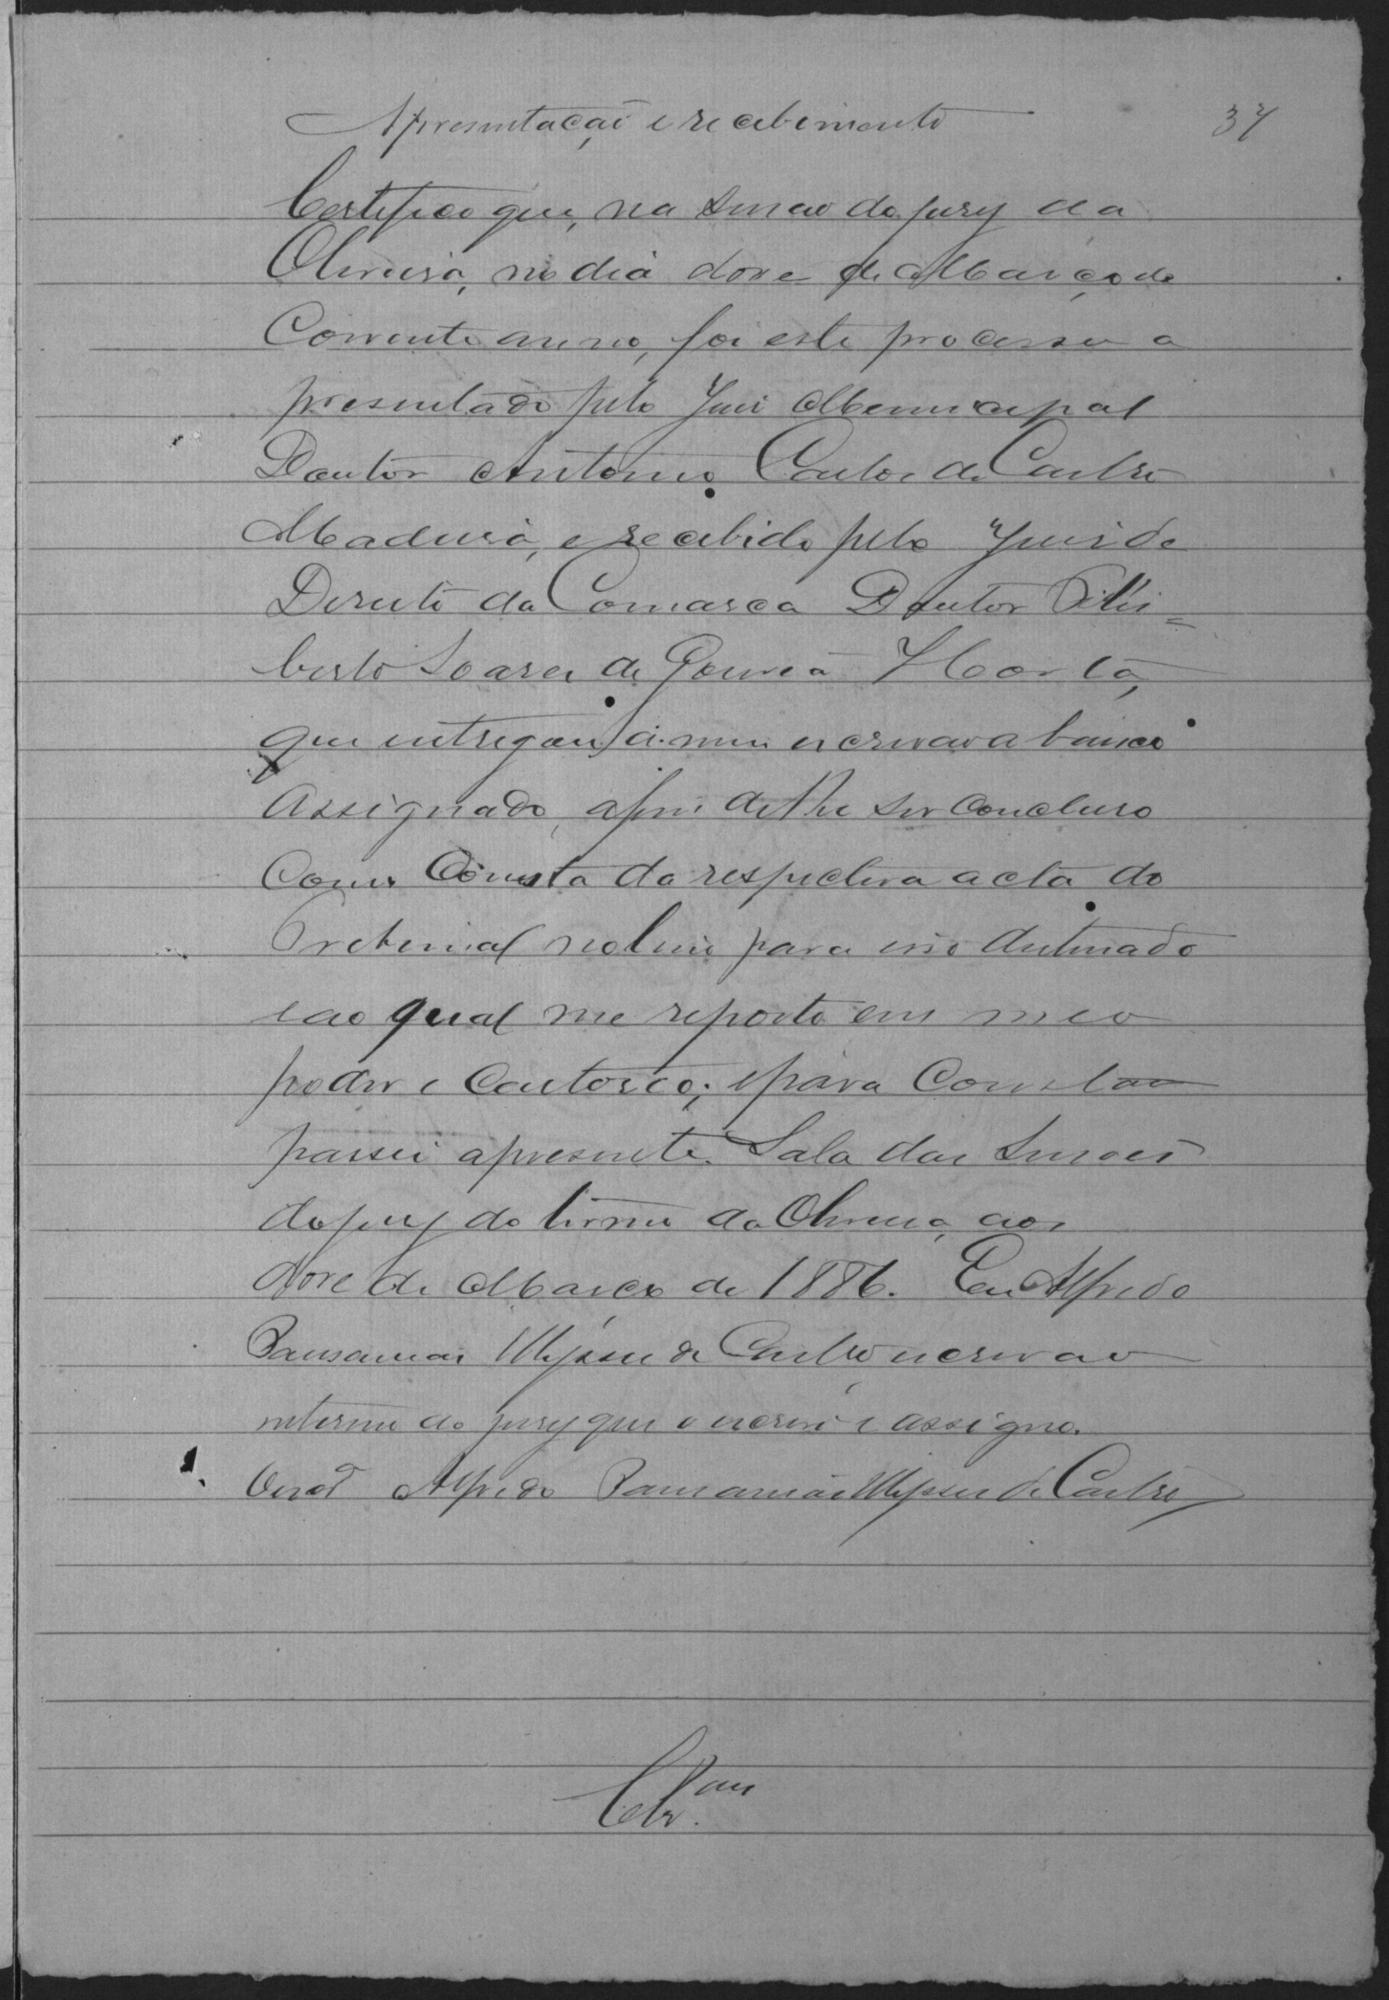 Apresentação e recebimento 37
Certifico que, na sessão do jury da
Oliveira, no dia doze de Março do
Corrente anno, foi este processo a
presentado pelo Juiz Municipal
Doutor Antonio Carlos de Castro
Madeira, e recebido pelo Juiz de
Direito da Comarca Doutor Phili=
berto Soares de Gouvêa Horta,
que entregou a mim escrivão abaixo
assignado, afim de lhe ser concluso
Como Consta da respectiva acta do
Tribunal no livro para isso destinado
e ao qual me reporto em meo
poder e Cartorio; e para Constar
passei a presente. Sala das Sessões
do jury do termo da Oliveira, aos
doze de Março de 1886. Eu Alfredo
Pausanias Ulysses de Castro escrivão
interino do jury que o escrevi e assigno.
Alfredo Pausanias Ulysses de Castro